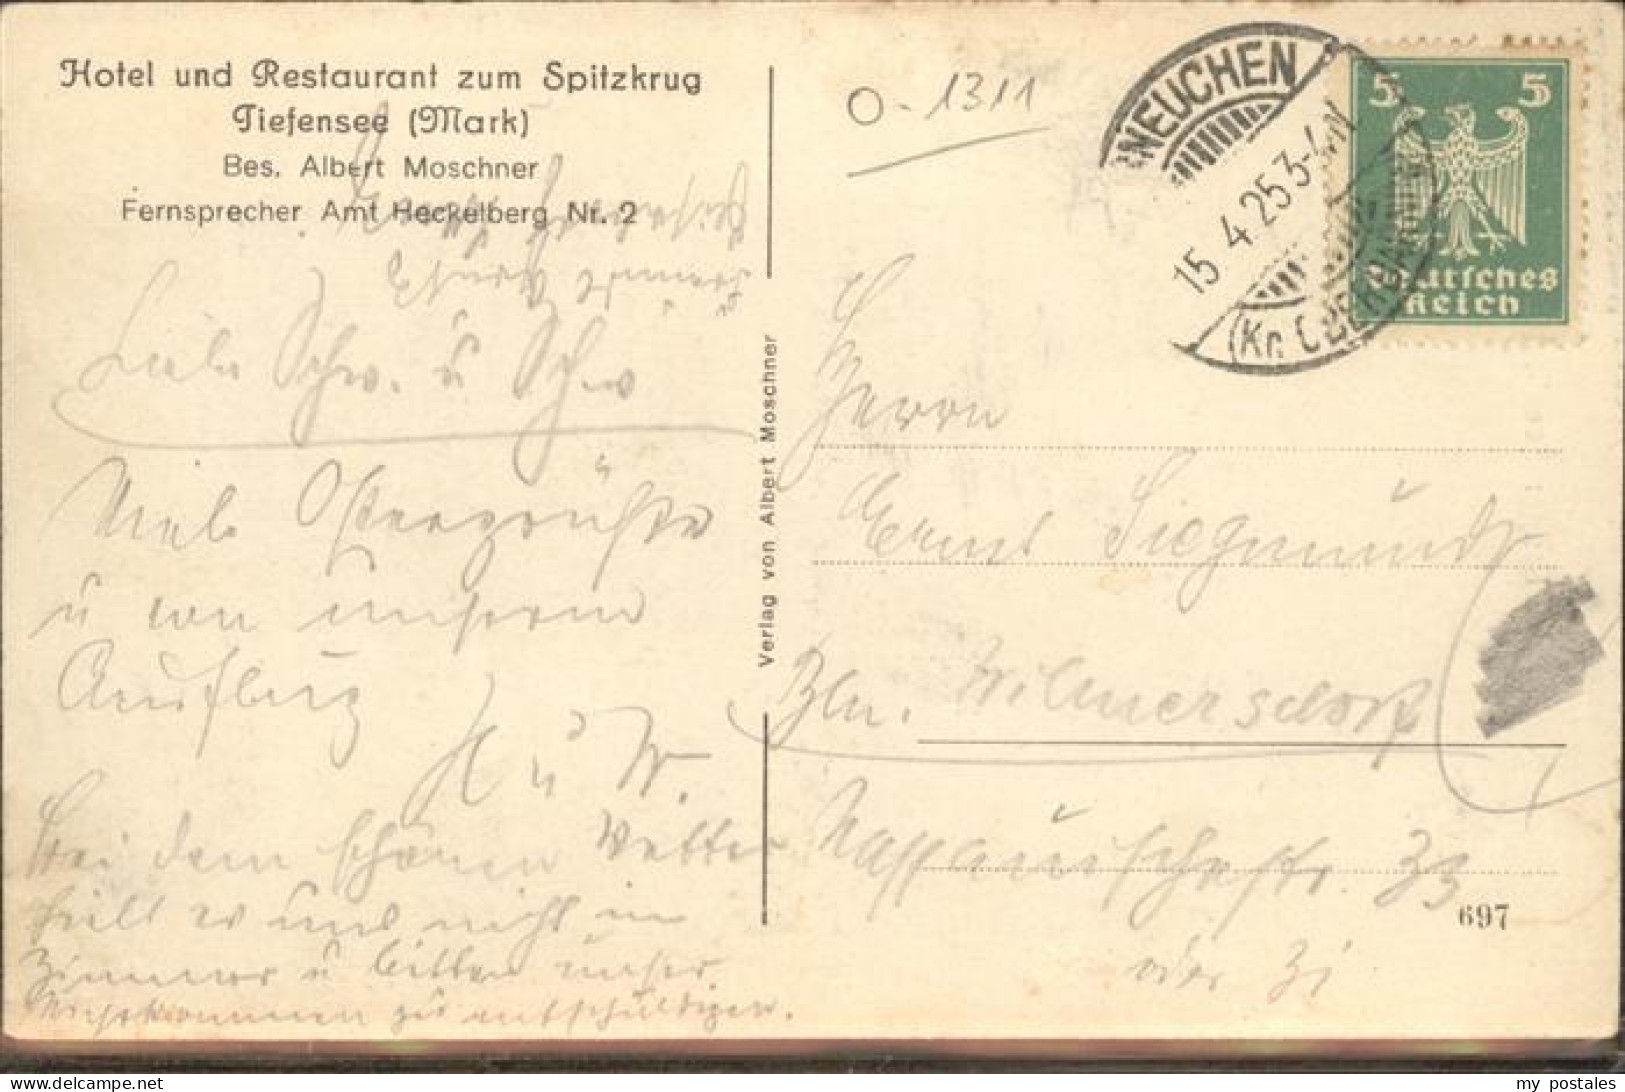 Hotel und Restaurant zum Spitzkrug
Tiefensee (Mark)
Bes. Albert Moschner
Fernsprecher Amt Heckelberg Nr. 2
0-1311
NEUCHEN
15.4.25 3-4N
5 5
Deutsches
Reich
Liebe Schw. u Schw
Viele Ostergrüße
u von unserem
Ausflug
H u W.
Bei dem schönen Wetter
hält es uns nicht im
Zimmer u bitten unser
Nichtkommen zu entschuldigen.
Verlag von Albert Moschner
Herrn
Ernst Siegmund
Bln. Wilmersdorf
Nassauischestr. 33
oder 31
697
my postales